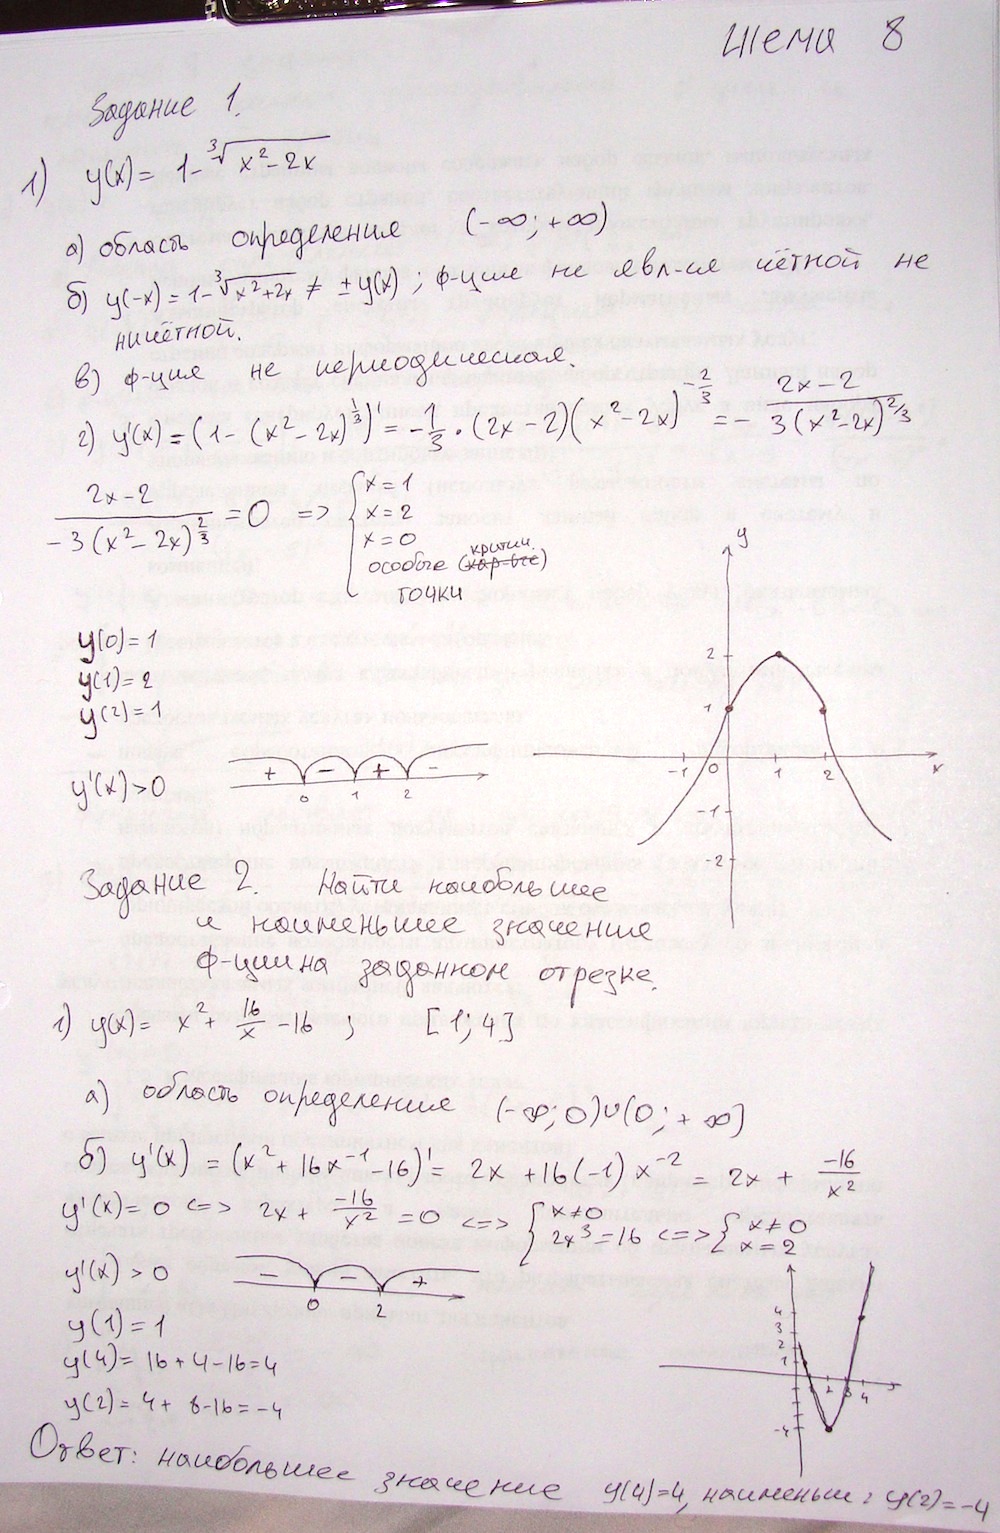 Тема 8
Задание 1.
1) y(x) = 1-∛(x²-2x)
а) область определения (-∞; +∞)
б) y(-x) = 1-∛(x²+2x) ≠ ±y(x); ф-ция не явл-ся чётной не
ничётной.
в) ф-ция не периодическая
г) y'(x) = (1-(x²-2x)^(1/3))' = -1/3·(2x-2)(x²-2x)^(-2/3) = -(2x-2)/(3(x²-2x)^(2/3))
(2x-2)/(-3(x²-2x)^(2/3)) = 0 => { x=1
x=2
x=0
критич.
особые (
точки
y
y(0)=1
y(1)=2
y(2)=1
2
1
-1 0 1 2 x
-1
-2
y'(x)>0 + - + -
0 1 2
Задание 2. Найти наибольшее
и наименьшее значение
ф-ции на заданном отрезке.
1) y(x) = x² + 16/x - 16 ; [1; 4]
а) область определения (-∞; 0)∪(0; +∞)
б) y'(x) = (x²+16x⁻¹-16)' = 2x+16(-1)x⁻² = 2x + -16/x²
y'(x)=0 <=> 2x + -16/x² = 0 <=> { x≠0
2x³=16 <=> { x≠0
x=2
y'(x)>0 - - +
0 2
y(1)=1
y(4)=16+4-16=4
y(2)=4+8-16=-4
4
3
2
1
1 2 3 4
-4
Ответ: наибольшее значение y(4)=4, наименьш: y(2)=-4